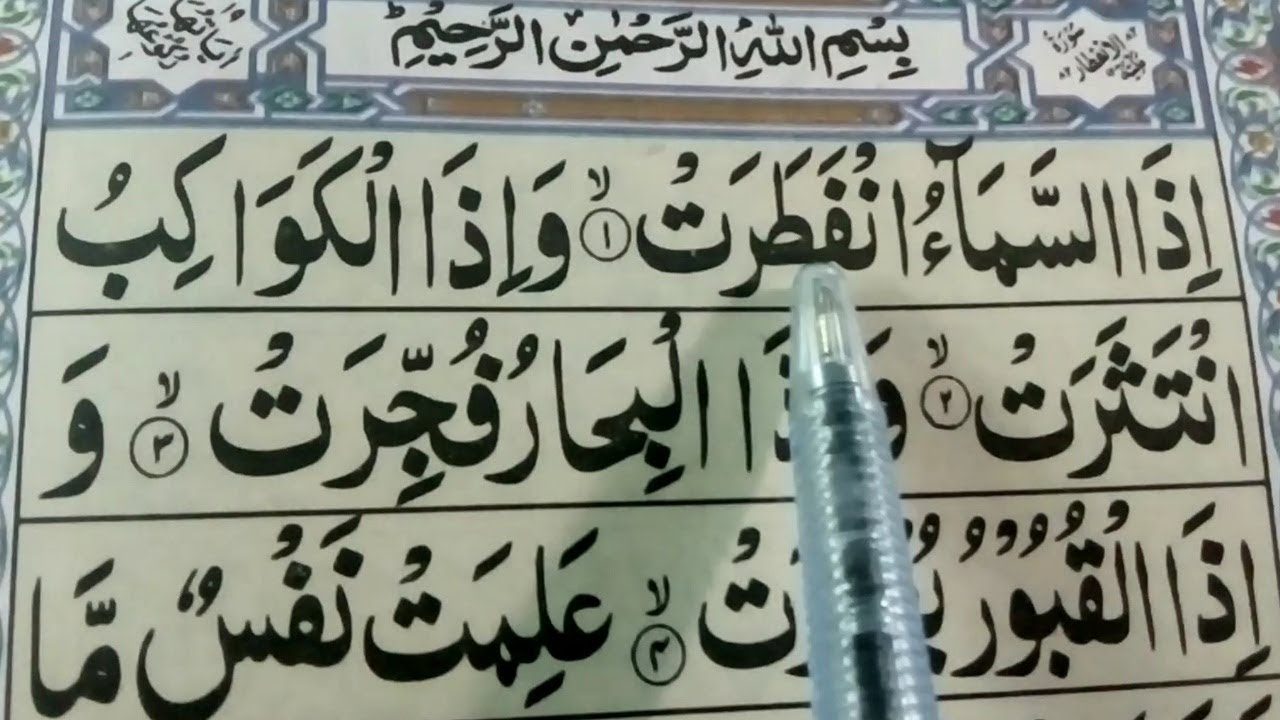 سورة الانفطار
بِسْمِ اللهِ الرَّحْمٰنِ الرَّحِيْمِ
اِذَا السَّمَآءُ انْفَطَرَتْ ۙ﴿۱﴾ وَاِذَا الْكَوَاكِبُ
انْتَثَرَتْ ۙ﴿۲﴾ الْبِحَارُ فُجِّرَتْ ۙ﴿۳﴾ وَ
اِذَا الْقُبُوْرُ ۙ﴿۴﴾ عَلِمَتْ نَفْسٌ مَّا